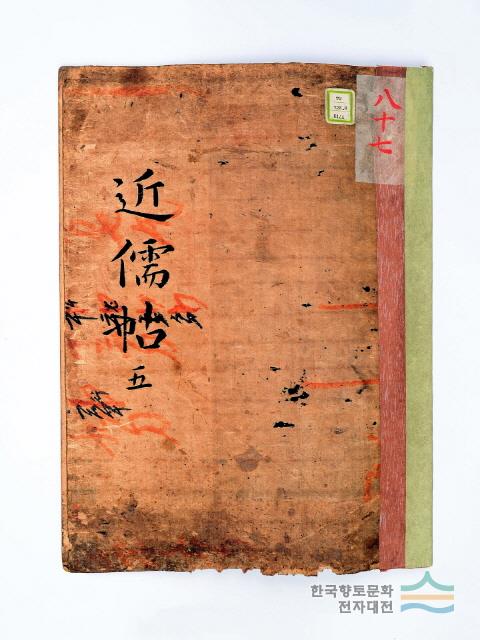 八十七
近儒帖
五
한국향토문화
전자대전